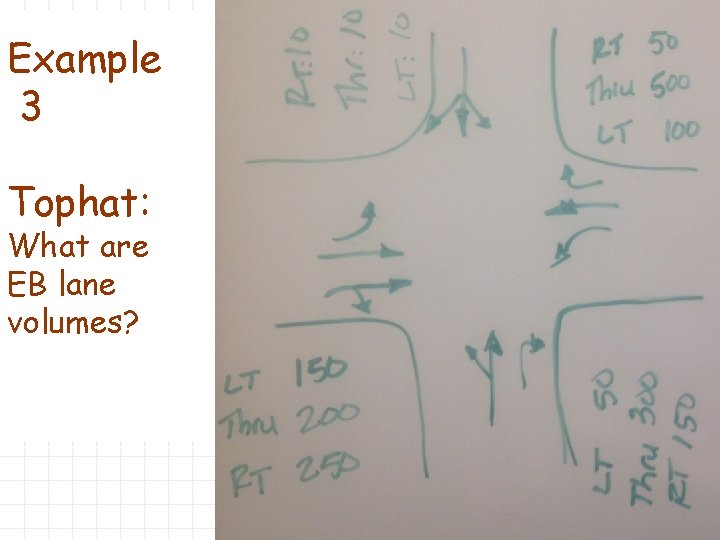 Example
3
Tophat:
What are
EB lane
volumes?
RT:10
Thr:10
LT:10
RT 50
Thru 500
LT 100
LT 150
Thru 200
RT 250
LT 50
Thru 300
RT 150